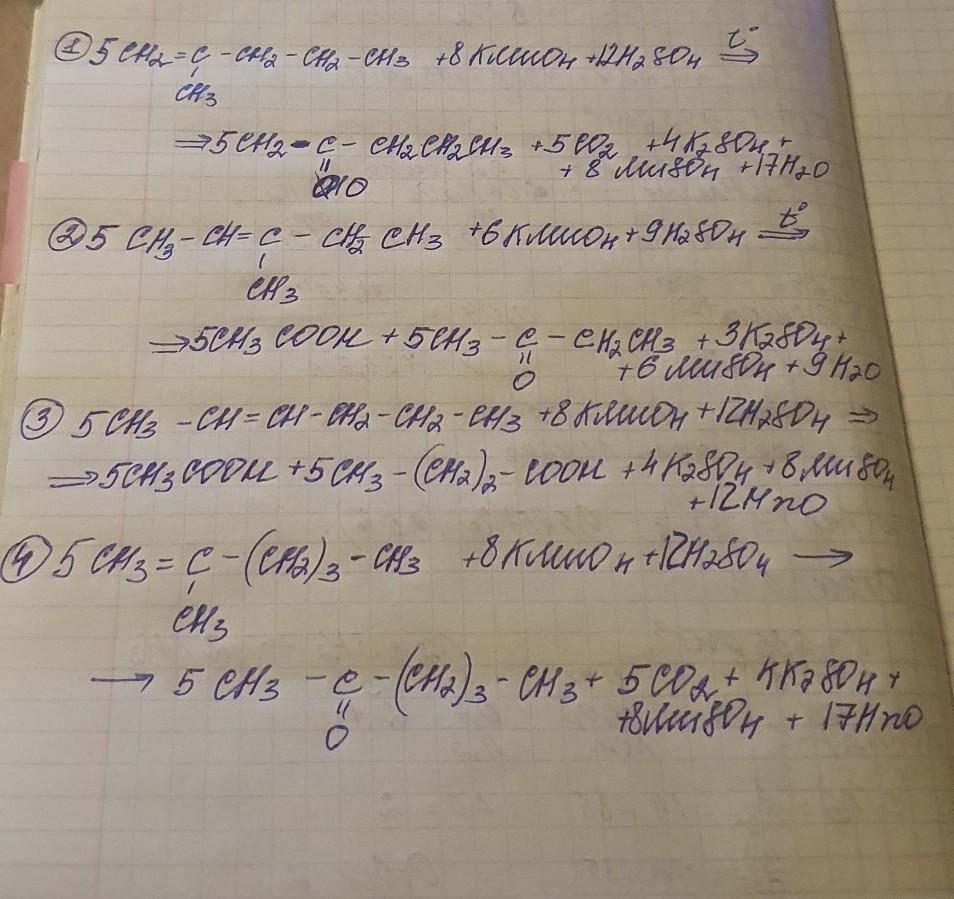 ① 5CH₂=C-CH₂-CH₂-CH₃ +8KMnO₄ +12H₂SO₄ t°⇒
CH₃
⇒5CH₂-C-CH₂CH₂CH₃ +5CO₂ +4K₂SO₄+
‖
O
+8MnSO₄ +17H₂O
② 5CH₃-CH=C-CH₂CH₃ +6KMnO₄+9H₂SO₄ t°⇒
CH₃
⇒5CH₃COOH+5CH₃-C-CH₂CH₃ +3K₂SO₄+
‖
O
+6MnSO₄+9H₂O
③ 5CH₃-CH=CH-CH₂-CH₂-CH₃+8KMnO₄+12H₂SO₄⇒
⇒5CH₃COOH+5CH₃-(CH₂)₂-COOH+4K₂SO₄+8MnSO₄
+12H₂O
④ 5CH₃=C-(CH₂)₃-CH₃ +8KMnO₄+12H₂SO₄→
CH₃
→5CH₃-C-(CH₂)₃-CH₃+5CO₂+4K₂SO₄+
‖
O
+8MnSO₄+17H₂O